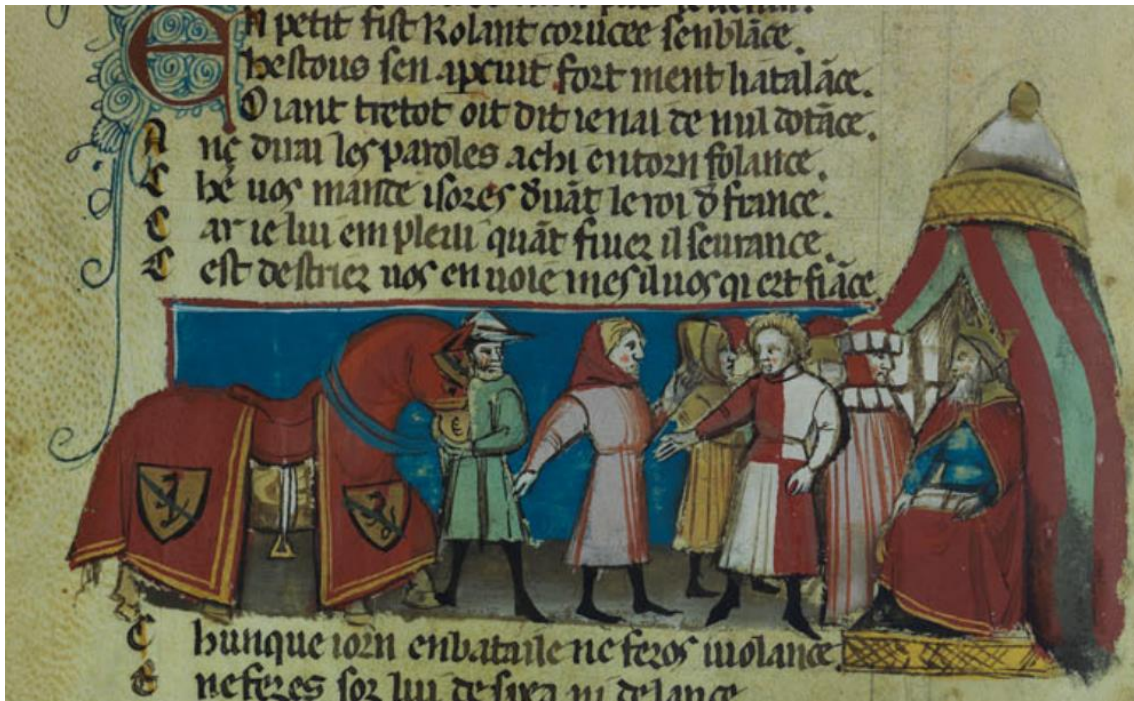 En petit fist Rolant corucee senblāce.
hestous sen apcuit fort ment hatalāce.
Oiant tretot oit dit ie nai de nul dotāce.
A les paroles achi entorn folance.
C hē uos mante isores duāt le roi d france.
C ar ie lui em pleui quāt fiuez il seurance.
C est destrier uos en uoie mes il uos qi ert fiāce
C hunque iorn enbataile ne feros uiolance.
E ne feres sor lui de spea ni de lance